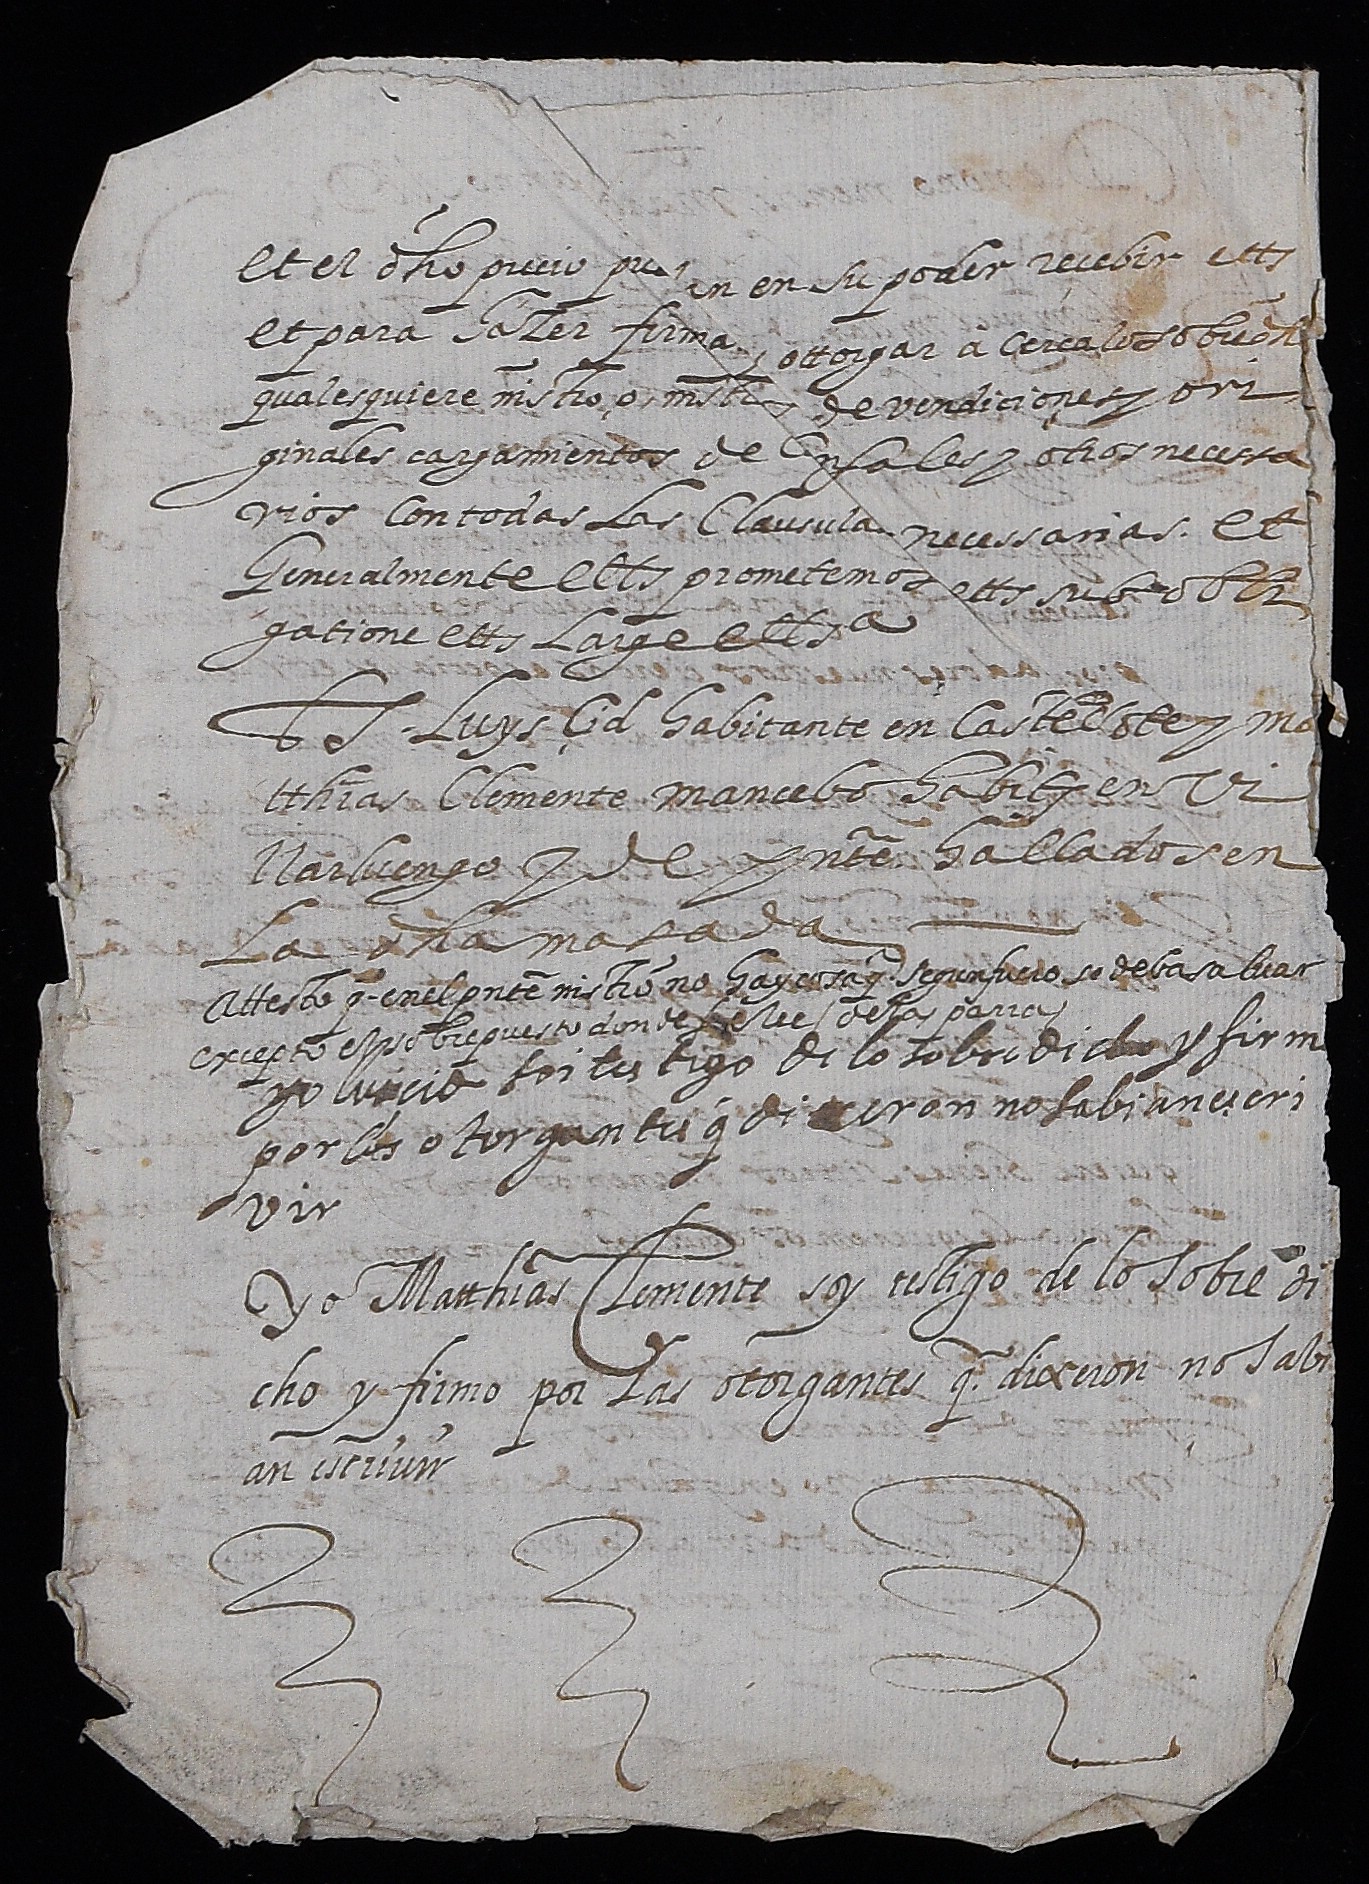 et el dho precio pu an en su poder recebir etts
et para fazer firma y ottorgar a cerca lo sobredh
qualesquiere instro o instr de vendiciones y ori
ginales cargamientos de Censales y otros necessa
rios con todas las Clausulas necessarias. et
Generalmente etts prometemos etts sub obli
gatione etts Large etts a
Ts Luys Cid habitante en Castellote y ma
tthias Clemente mancebo habitte en Vi
llarluengo y de pnte hallados en
La dha matada
Attesto q. en el pnte instro no hay cosa q. segun fuero se deba saluar
excepto el sobrepuesto donde se lee de las parras
yo luis cid soi testigo de lo sobredicho y firm
por las otorgantes q dixeron no sabian escri
vir
Yo Matthias Clemente soy testigo de lo sobre di
cho y firmo por las otorgantes q. dixeron no sabi
an escriuir